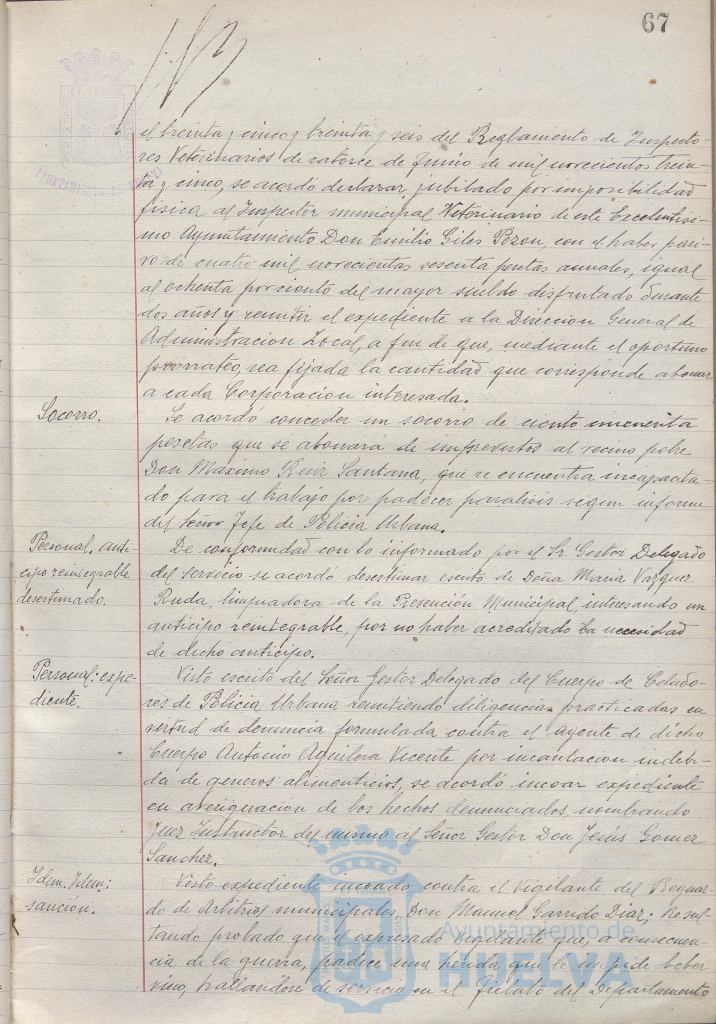 67
el treinta y cinco y treinta y seis del Reglamento de Inspecto-
res Veterinarios de catorce de Junio de mil novecientos trein-
ta y cinco, se acordó declarar jubilado por imposibilidad
física al Inspector municipal Veterinario de este Excelentísi-
mo Ayuntamiento Don Emilio Giles Pozon, con el haber pasi-
vo de cuatro mil novecientas sesenta pesetas anuales, igual
al ochenta por ciento del mayor sueldo disfrutado durante
dos años y remitir el expediente a la Direccion General de
Administracion Local, a fin de que, mediante el oportuno
prorrateo, sea fijada la cantidad que corresponde abonar
a cada Corporación interesada.
Socorro.
Se acordó conceder un socorro de ciento cincuenta
pesetas que se abonará de imprevistos al vecino pobre
Don Máximo Ruiz Santana, que se encuentra incapacita-
do para el trabajo por padecer paralisis segun informe
del Señor Jefe de Policía Urbana.
Personal. anti-
cipo reintegrable
desestimado.
De conformidad con lo informado por el Sr. Gestor Delegado
del servicio se acordó desestimar escrito de Doña María Vazquez
Ruda, limpiadora de la Prevención Municipal, interesando un
anticipo reintegrable, por no haber acreditado la necesidad
de dicho anticipo.
Personal: expe-
diente.
Visto escrito del Señor Gestor Delegado del Cuerpo de Celado-
res de Policía Urbana remitiendo diligencias practicadas en
virtud de denuncia formulada contra el Agente de dicho
Cuerpo Antonio Aguilera Vicente por incautacion indebi-
da de generos alimenticios, se acordó incoar expediente
en averiguación de los hechos denunciados, nombrando
Juez Instructor del mismo al Señor Gestor Don Jesús Gomez
Sanchez.
Idem. Idem:
sanción.
Visto expediente incoado contra el Vigilante del Resguar-
do de Arbitrios municipales, Don Manuel Garrido Diaz; Resul-
tando probado que el expresado Vigilante que, a consecuen-
cia de la guerra, padece una herida que le impide beber
vino, hallándose de servicio en el Fielato del Departamento
Ayuntamiento de
HUELVA